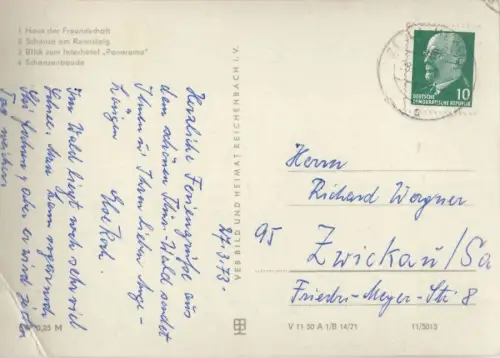 1 Haus der Freundschaft
2 Schanze am Rennsteig
3 Blick zum Interhotel „Panorama“
4 Schanzenbaude
27.3.73
Herzliche Feriengrüße aus
dem schönen Thür. Wald sendet
Ihnen u. Ihren lieben Ange-
hörigen
Im Wald liegt noch sehr viel
Schnee. Man kann sogar noch
Ski fahren,
0,25 M
VEB BILD UND HEIMAT REICHENBACH I. V.
DEUTSCHE
DEMOKRATISCHE REPUBLIK
10
Herrn
Richard Wagner
95 Zwickau/Sa
Friedr.-Meyer-Str. 8
V 11 50 A 1/B 14/71 11/5013